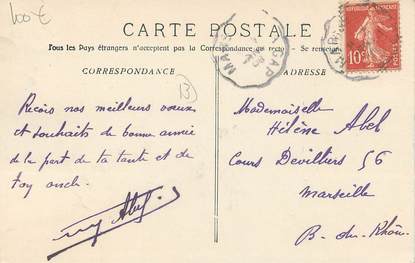 100 €
CARTE POSTALE
Tous les Pays étrangers n'acceptent pas la Correspondance au recto — Se renseigner
CORRESPONDANCE
ADRESSE
13
GAP
REPUBLIQUE FRANÇAISE
10c
Reçois nos meilleurs vœux
et souhaits de bonne année
de la part de ta tante et de
ton oncle.
Abel
Mademoiselle
Hélène Abel
Cours Devilliers 56
Marseille
B-du-Rhône